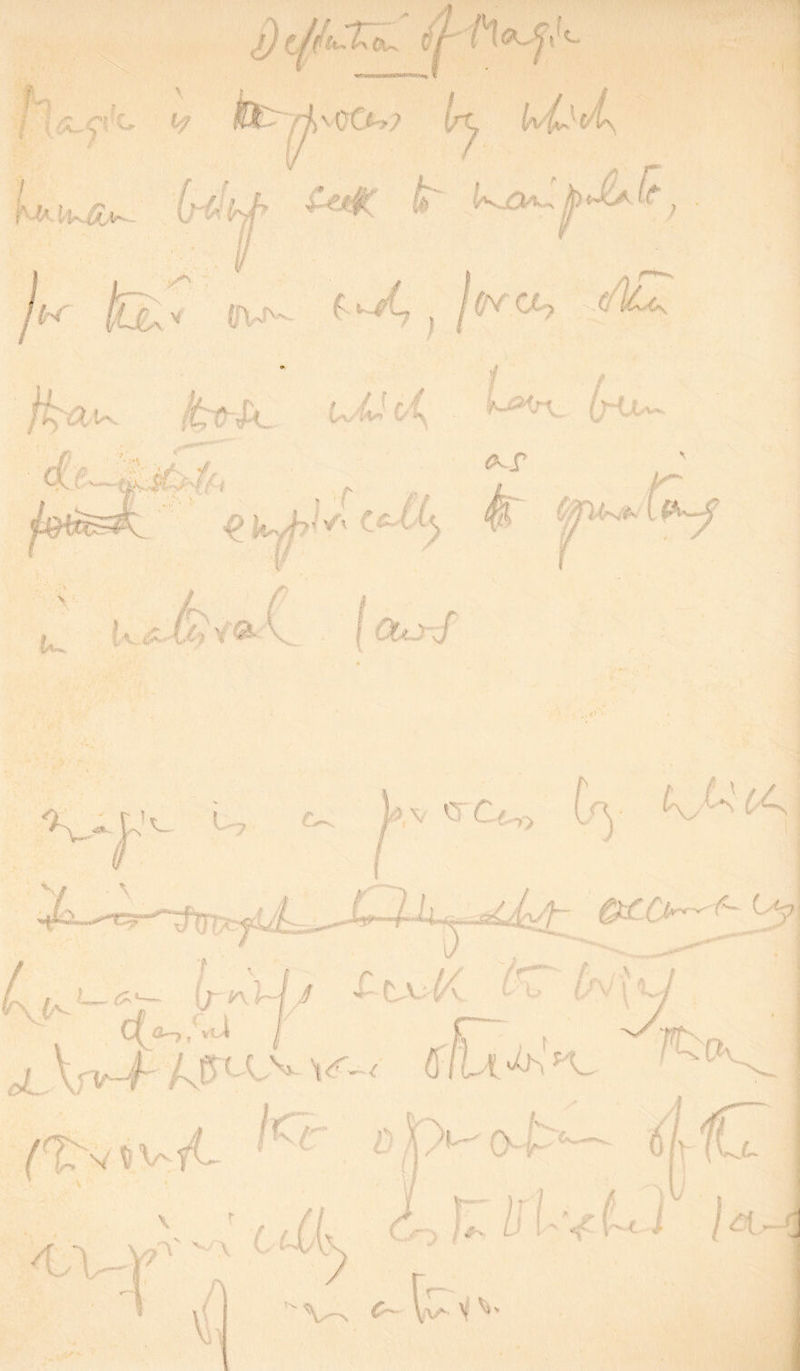 Definition of Magic
Magic is the process by which
human beings seek to manipulate,
for their own ends, forces other
than those which have been
demonstrated as
found empirically to operating
in natural laws
Magic is a process by which
it is sought to bring about occurrences
human beings seek to bring
desired
about occurrences otherwise than
through the operation of the
empirically established laws
of nature.